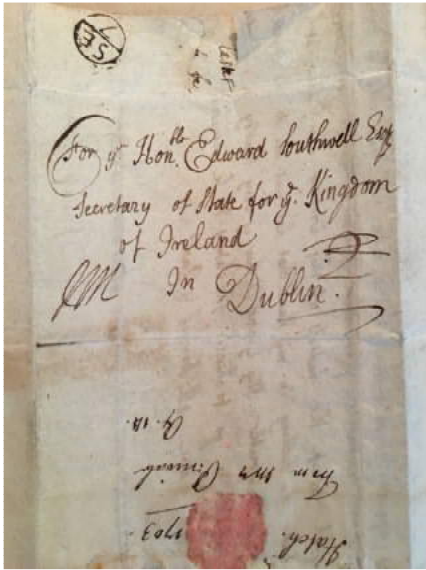 SE
For yᵉ Honᵇˡᵉ Edward Southwell Esqʳ
Secretary of State for yᵉ Kingdom
of Ireland
In Dublin.
Hatch. 1703.
From Mr